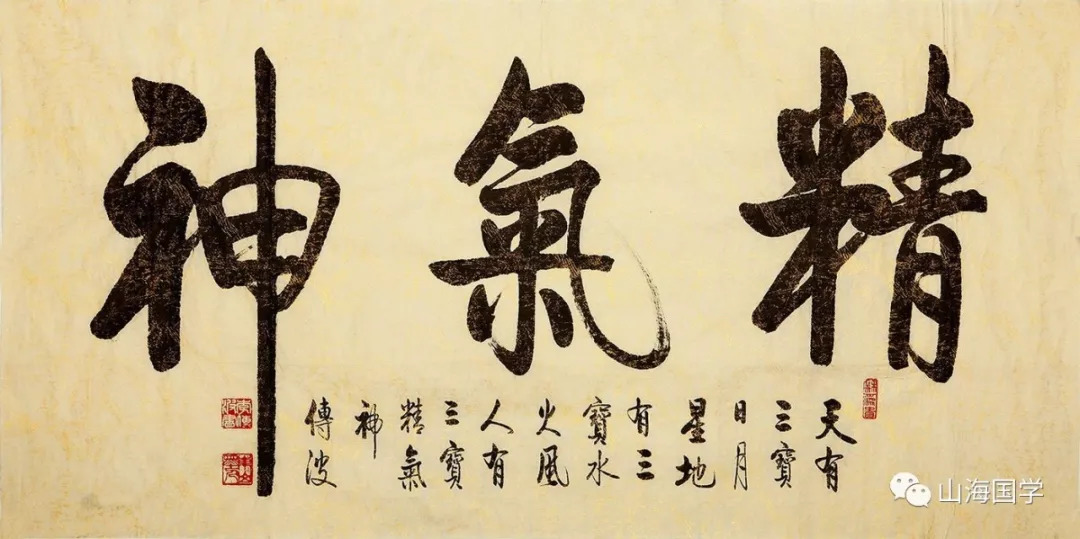 精氣神
天有
三寶
日月
星地
有三
寶水
火風
人有
三寶
精氣
神
傳波
山海国学